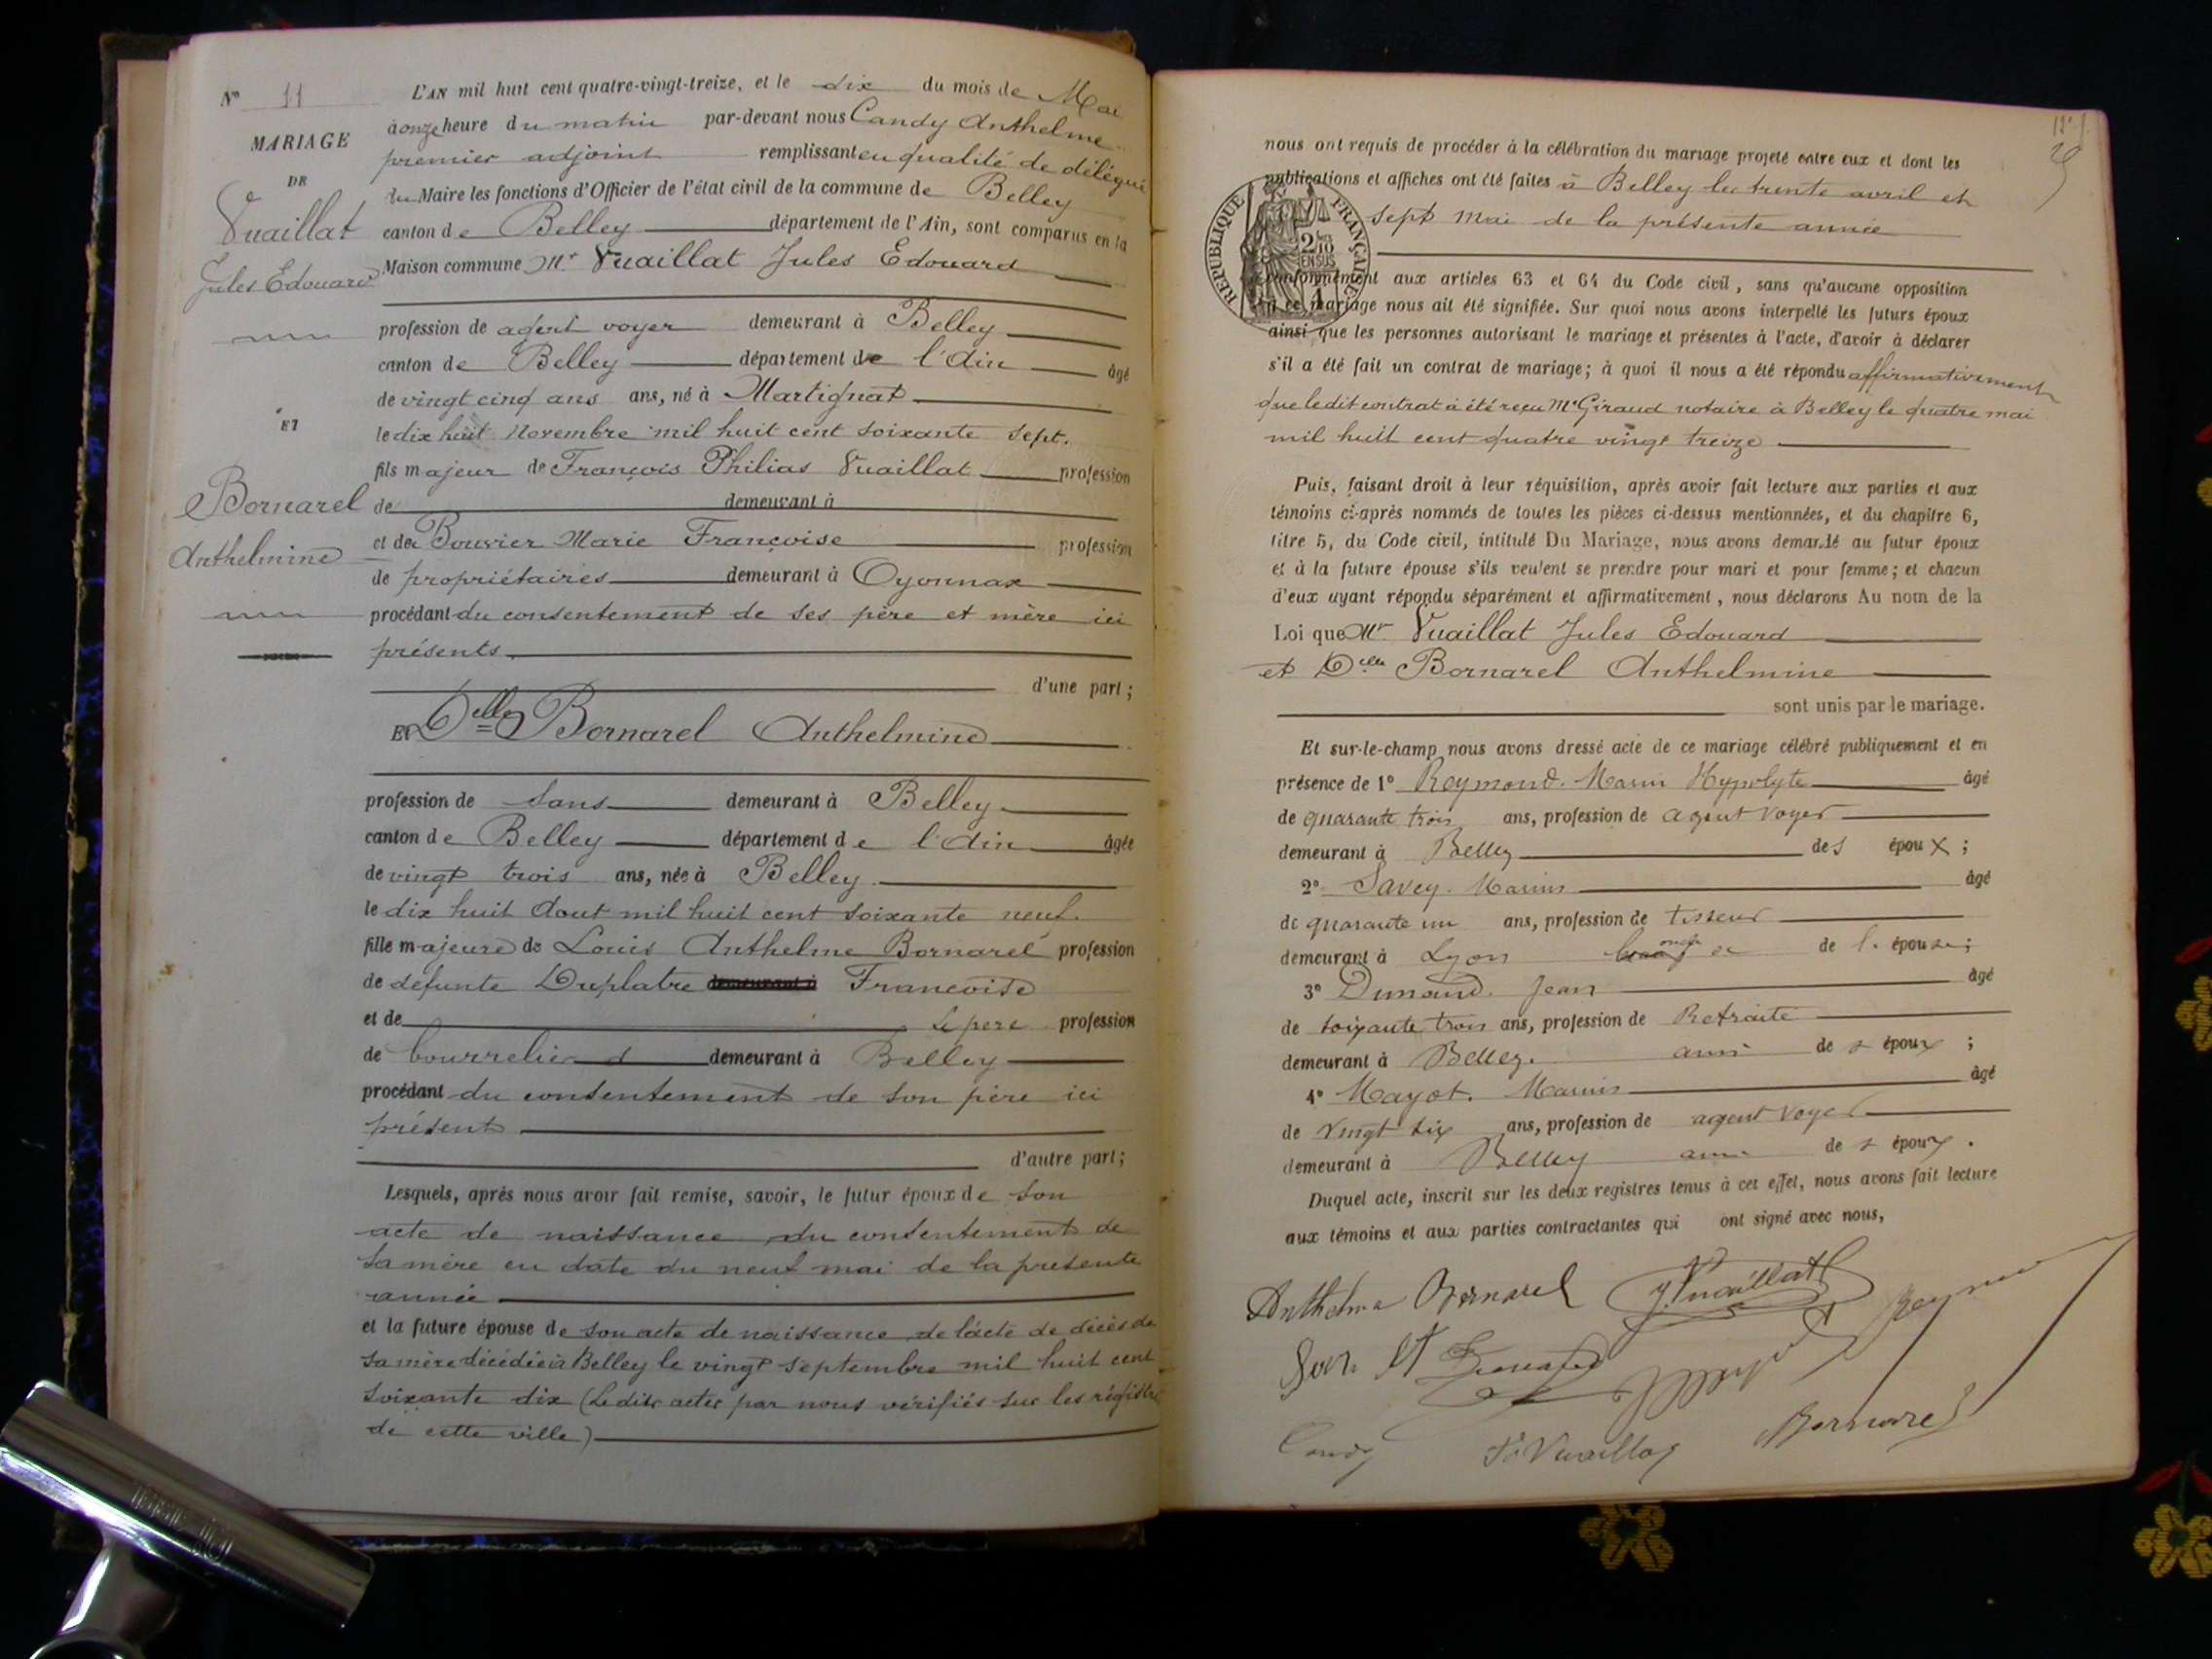 N° 11
MARIAGE
DE
Vuaillat
Jules Edouard
ET
Bornarel
Anthelmine
L'AN mil huit cent quatre-vingt-treize, et le dix du mois de Mai
à onze heure du matin par-devant nous Candy Anthelme
premier adjoint remplissant en qualité de délégué
du Maire les fonctions d'Officier de l'état civil de la commune de Belley
canton de Belley département de l'Ain, sont comparus en la
Maison commune Mr Vuaillat Jules Edouard
profession de agent voyer demeurant à Belley
canton de Belley département de l'Ain âgé
de vingt cinq ans ans, né à Martignat
le dix huit Novembre mil huit cent soixante sept.
fils majeur de François Philias Vuaillat profession
de demeurant à
et de Bouvier Marie Françoise profession
de propriétaires demeurant à Oyonnax
procédant du consentement de ses père et mère ici
présents
d'une part;
Et Delle Bornarel Anthelmine
profession de Sans demeurant à Belley
canton de Belley département de l'Ain âgée
de vingt trois ans, née à Belley
le dix huit Aout mil huit cent soixante neuf.
fille majeure de Louis Anthelme Bornarel profession
de défunte Duplatre demeurant à Françoise
et de Le père profession
de bourrelier demeurant à Belley
procédant du consentement de son père ici
présent
d'autre part;
Lesquels, après nous avoir fait remise, savoir, le futur époux de son
acte de naissance du consentement de
sa mère en date du neuf mai de la présente
année
et la future épouse de son acte de naissance de l'acte de décès de
sa mère décédée à Belley le vingt septembre mil huit cent
soixante dix (Ledits actes par nous vérifiés sur les régistres
de cette ville)
nous ont requis de procéder à la célébration du mariage projeté entre eux et dont les
publications et affiches ont été faites à Belley les trente avril et
sept mai de la présente année
RÉPUBLIQUE FRANÇAISE
2/10 EN SUS
conformément aux articles 63 et 64 du Code civil, sans qu'aucune opposition
à ce mariage nous ait été signifiée. Sur quoi nous avons interpellé les futurs époux
ainsi que les personnes autorisant le mariage et présentes à l'acte, d'avoir à déclarer
s'il a été fait un contrat de mariage; à quoi il nous a été répondu affirmativement
que ledit contrat à été reçu Me Giraud notaire à Belley le quatre mai
mil huit cent quatre vingt treize
Puis, faisant droit à leur réquisition, après avoir fait lecture aux parties et aux
témoins ci-après nommés de toutes les pièces ci-dessus mentionnées, et du chapitre 6,
titre 5, du Code civil, intitulé Du Mariage, nous avons demandé au futur époux
et à la future épouse s'ils veulent se prendre pour mari et pour femme; et chacun
d'eux ayant répondu séparément et affirmativement, nous déclarons Au nom de la
Loi que Mr Vuaillat Jules Edouard
et Delle Bornarel Anthelmine
sont unis par le mariage.
Et sur-le-champ nous avons dressé acte de ce mariage célébré publiquement et en
présence de 1° Reymond. Marin Hypolyte âgé
de quarante trois ans, profession de agent voyer
demeurant à Belley des époux;
2° Savey. Marius âgé
de quarante un ans, profession de tisseur
demeurant à Lyon oncle de l'épouse;
3° Dunand. Jean âgé
de soixante trois ans, profession de Retraité
demeurant à Belley. ami des époux;
4° Mayot. Marius âgé
de vingt six ans, profession de agent voyer
demeurant à Belley ami des époux.
Duquel acte, inscrit sur les deux registres tenus à cet effet, nous avons fait lecture
aux témoins et aux parties contractantes qui ont signé avec nous,
Anthelme Bornarel J. Vuaillat
Candy Vuaillat Bornarel